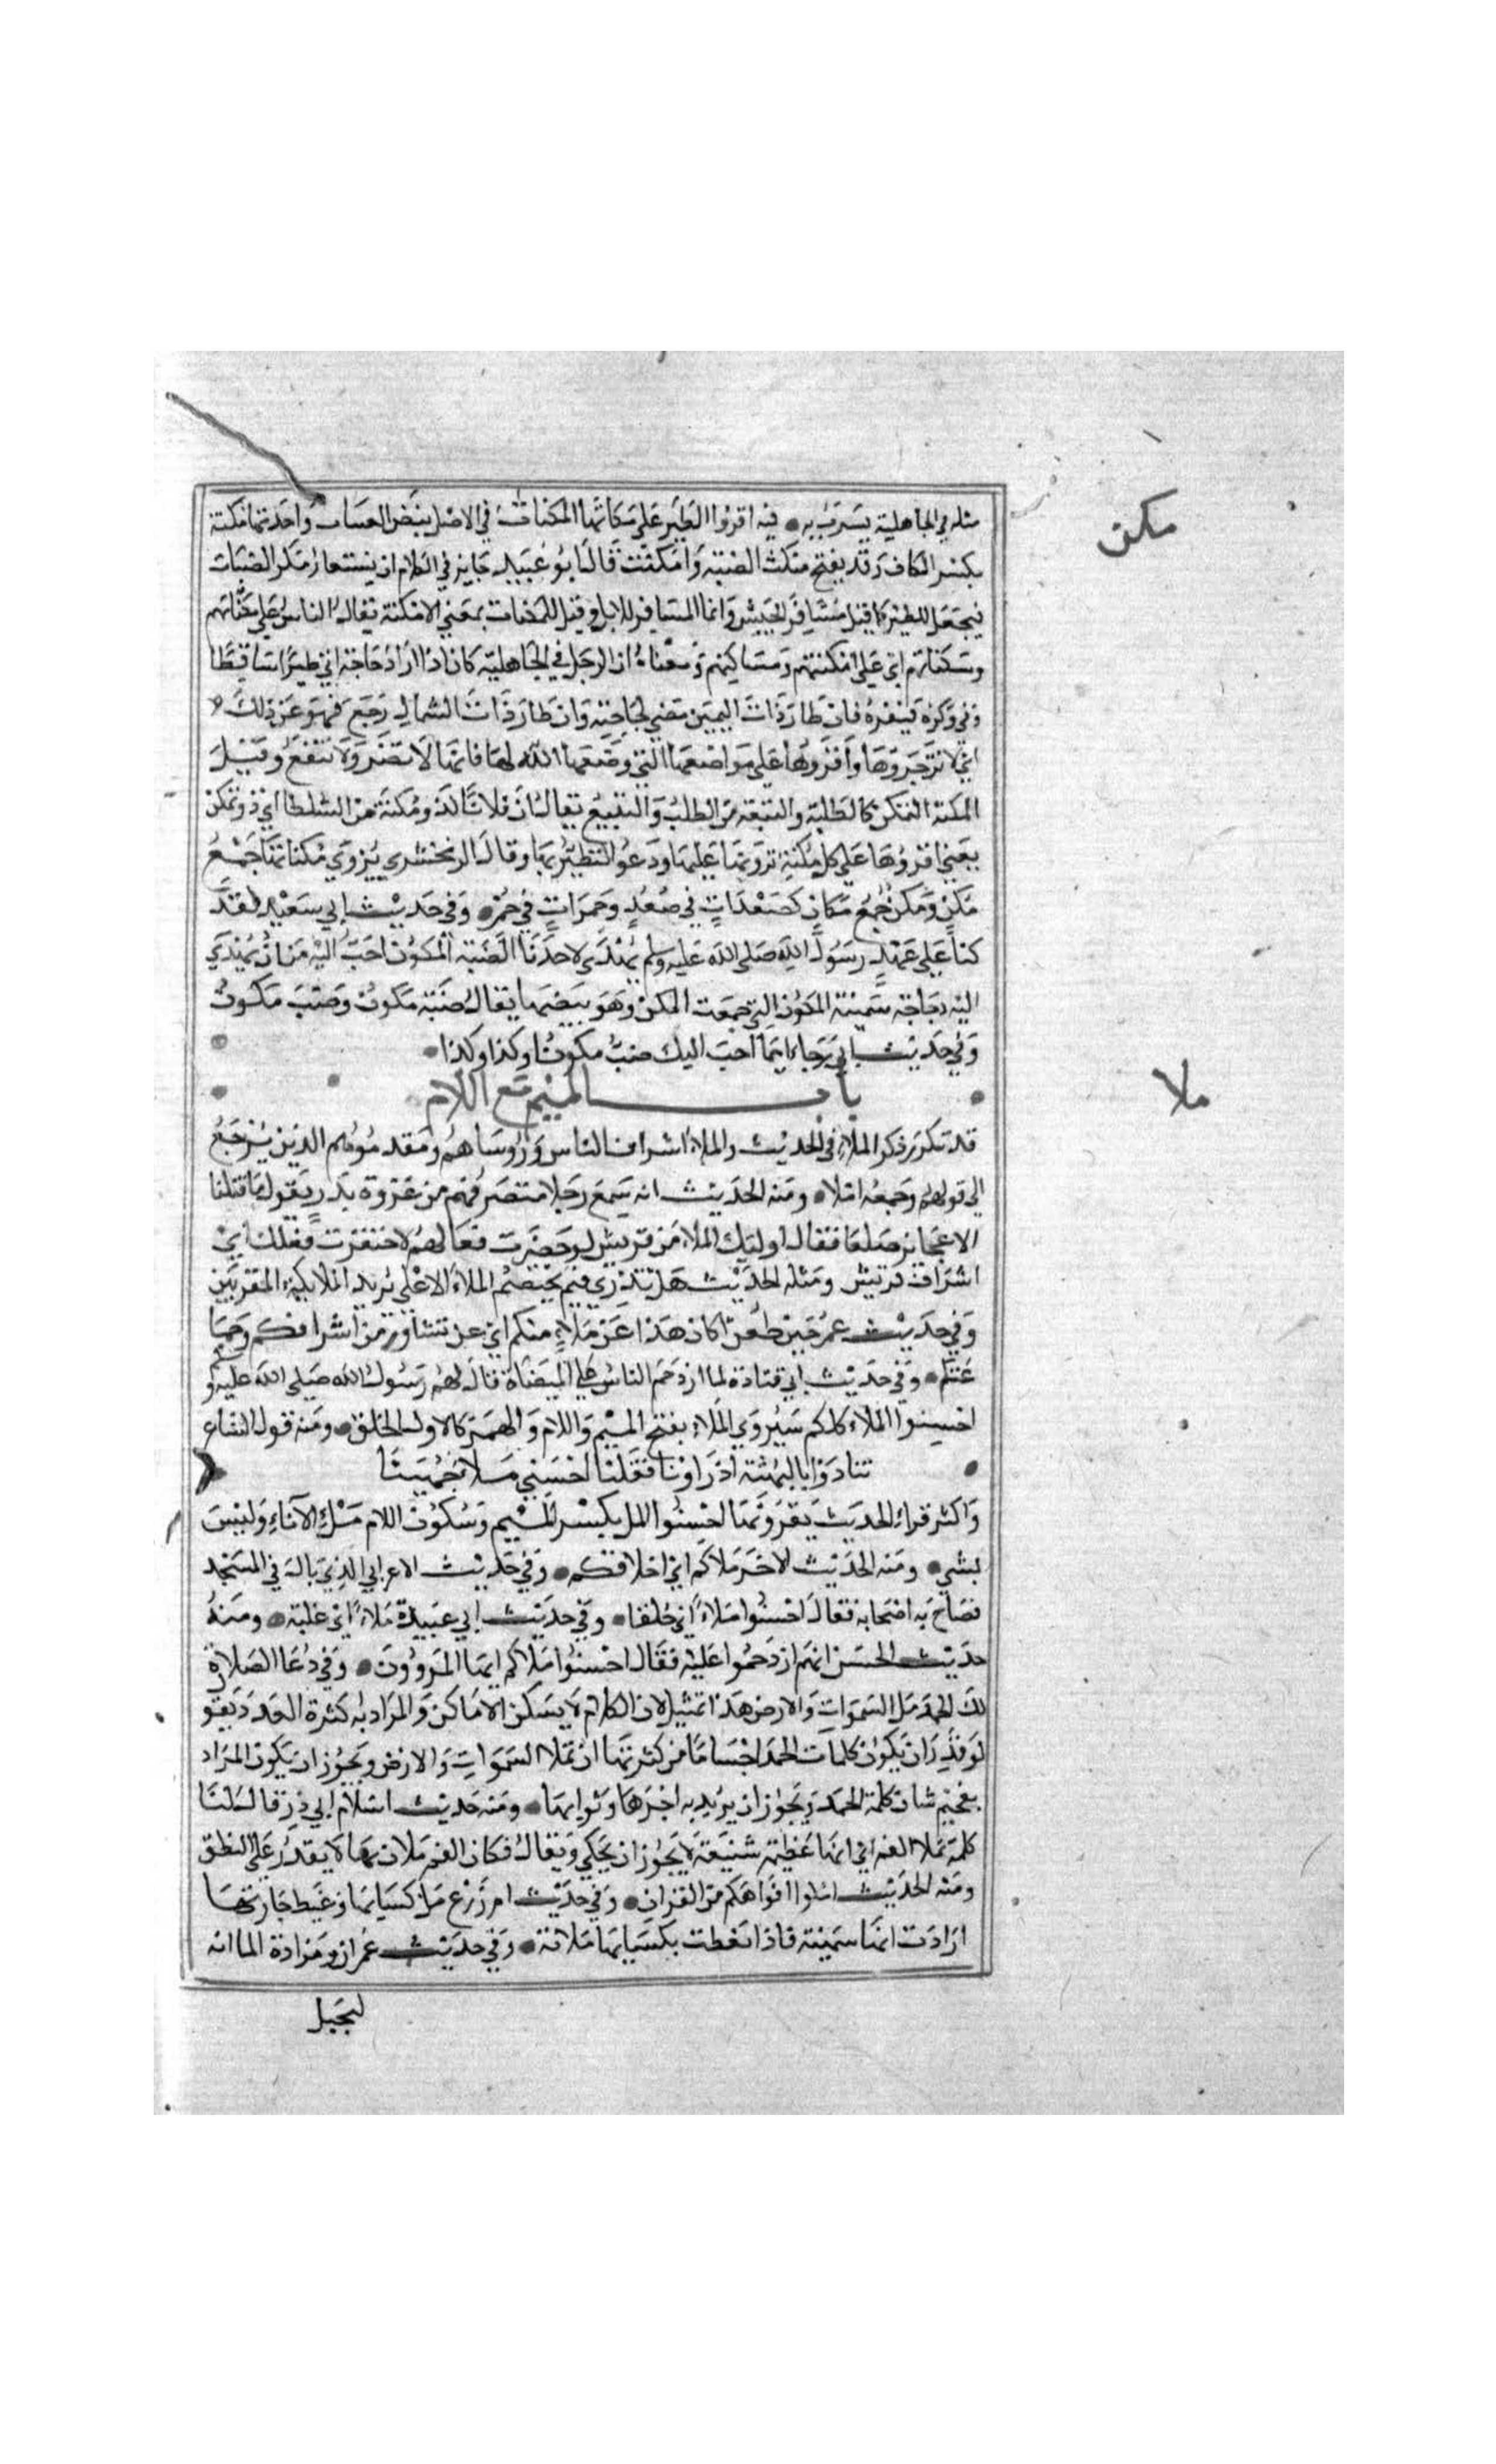 مكن
مثله في الجاهلية يسرب به • فيه اقروا الطير على مكاناتها المكنات في الاصل بيض الضباب واحدتها مكنة
بكسر الكاف وقد يفتح مكنت الضبة وامكنت قال ابو عبيد جايز في الكلام ان يستعار مكن الضباب
فيجعل للطير كما قيل مشافر الحبش وانما المشافر للابل وقيل المكنات بمعنى الامكنة يقال الناس على مكناتهم
وسكناتهم اي على امكنتهم ومساكنهم ومعناه ان الرجل في الجاهلية كان اذا اراد حاجة اتى طيرا ساقطا
وفي وكره فينفره فان طار ذات اليمين مضى لحاجته وان طار ذات الشمال رجع فهو عن ذلك
اي لا تزجروها واقروها على مواضعها التي وضعها الله لها فانها لا تضر ولا تنفع وقيل
المكنة التمكن كالطلبة والتبعة من الطلب والتتبع يقال ان فلانا لذو مكنة من السلطان اي ذو تمكن
يعني اقروها على كل مكنة ترونها عليها ودعوا التطير بها وقال الزمخشري يروى مكناتها جمع
مكن ومكن جمع مكان كصعدات في صعد وحمرات في حمر • وفي حديث ابي سعيد لقد
كنا على عهد رسول الله صلى الله عليه وسلم يهدى لاحدنا الضبة المكون احب اليه من ان يهدي
اليه دجاجة سمينة المكون التي جمعت المكن وهو بيضها يقال ضبة مكون وضب مكون
وفي حديث ابي رجاء ايما احب اليك ضب مكون او كذا وكذا •
ملا
باب الميم مع اللام
قد تكرر ذكر الملاء في الحديث والملاء اشراف الناس وروساهم ومقدموهم الذين يرجع
الى قولهم وجمعه املاء • ومنه الحديث انه سمع رجلا منصرفهم من غزوة بدر يقول ما قتلنا
الا عجايز صلعا فقال اوليك الملاء من قريش لو حضرت فعالهم لاحتقرت فعلك اي
اشراف قريش ومثله الحديث هل تدري فيم يختصم الملاء الاعلى يريد الملايكة المقربين
وفي حديث عمر حين طعن اكان هذا عن ملاء منكم اي عن تشاور من اشرافكم وجما
عتكم • وفي حديث ابي قتادة لما ازدحم الناس على الميضاة قال لهم رسول الله صلى الله عليه و
احسنوا الملاء كلكم سيروى الملاء بفتح الميم واللام والهمزة كالاول الخلق • ومنه قول الشاعر
• تنادوا يا لبهثة اذ راونا فقلنا احسني ملا جهينا
واكثر قراء الحديث يقرونها احسنوا المل بكسر الميم وسكون اللام من مل الاناء وليس
بشي • ومنه الحديث الاخر ملاكم اي اخلاقكم • وفي حديث الاعرابي الذي بال في المسجد
فصاح به اصحابه فقال احسنوا ملاء اي خلقا • وفي حديث ابي عبيدة ملاء اي غلبة • ومنه
حديث الحسن انهم ازدحموا عليه فقال احسنوا ملاكم ايها المروون • وفي دعا الصلاة
لك الحمد مل السموات والارض هذا تمثيل لان الكلام لا يسكن الاماكن والمراد به كثرة العدد يقو
لو قدر ان يكون كلمات الحمد اجساما من كثرتها ان تملا السموات والارض ويجوز ان يكون المراد
بفخيم شان كلمة الحمد ويجوز ان يريد به اجرها وثوابها • ومنه حديث اسلام ابي ذر قال لنا
كلمة تملا الفم اي انها عظيمة شنيعة لا يجوز ان يحكي ويقال فكان الفم ملان بها لا يقدر على النطق
ومنه الحديث املوا افواهكم من القران • وفي حديث ام زرع مل كسايها وغيظ جارتها
ارادت انها سمينة فاذا تغطت بكسايها ملاته • وفي حديث عمران ومزادة الما انه
ليخيل